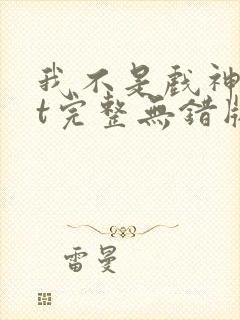 我不是戲神
t完整無錯版
雷曼